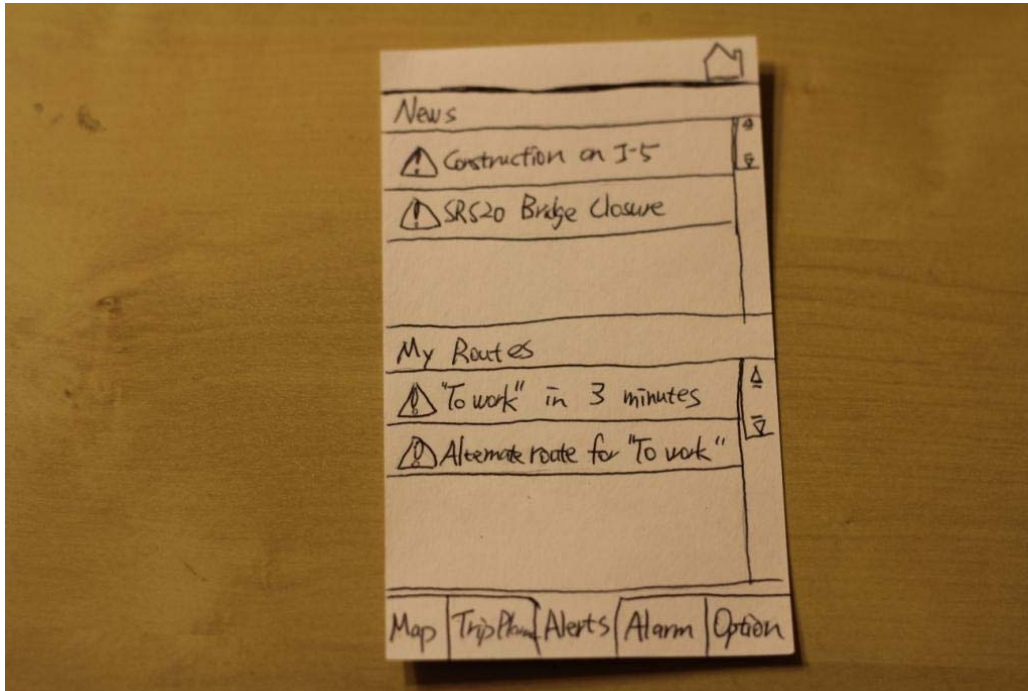 News
Construction on I-5
SR520 Bridge Closure
My Routes
"To work" in 3 minutes
Alternate route for "To work"
Map Trip Plan Alerts Alarm Option